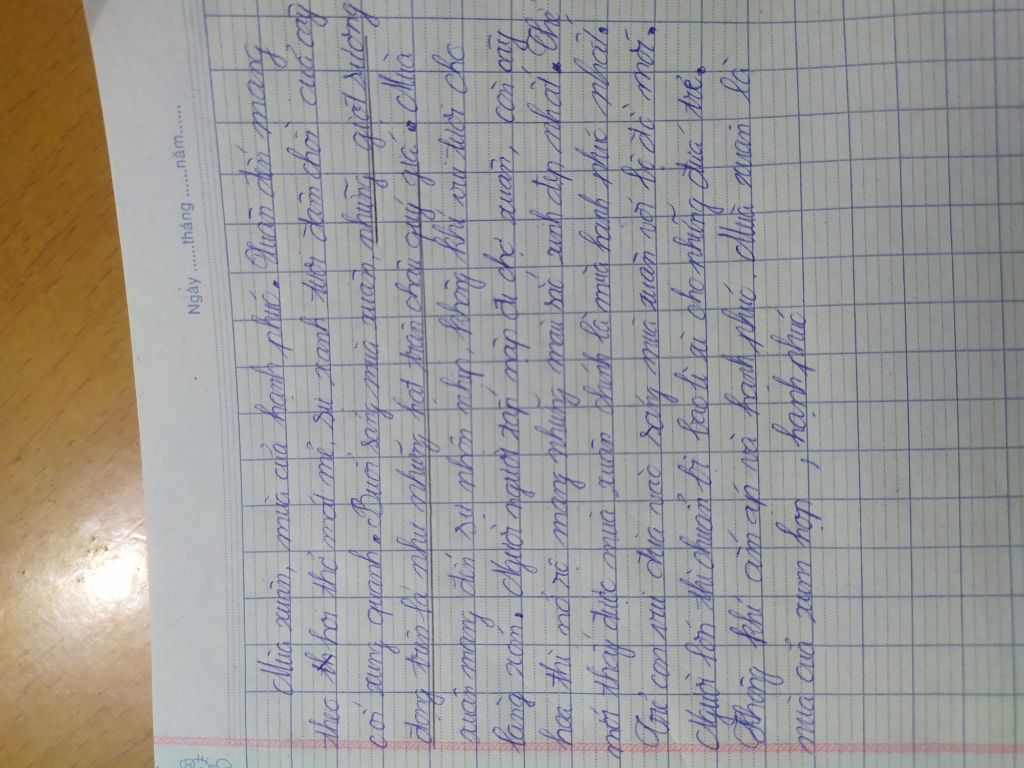 Ngày ......tháng ......năm......
Mùa xuân, mùa của hạnh phúc. Xuân đến mang
theo th hơi thở mát mẻ, sự xanh tươi đâm chồi của cây
cối xung quanh. Buổi sáng mùa xuân, những giọt sương
đọng trên lá như những hạt trân châu quý giá. Mùa
xuân mang đến sự nhộn nhịp, không khí vui tươi cho
làng xóm. Người người tấp nập đi chợ xuân, cỏi cây
hoa thì nở rộ mang những màu sắc xinh đẹp nhất. Thế
mới thấy được mùa xuân chính là mùa hạnh phúc nhất.
Trẻ con vui đùa nào sáng mùa xuân với bộ đồ mới.
Người lớn thì chuẩn bị bao lì xì cho những đứa trẻ.
Không khí ấm áp và hạnh phúc. Mùa xuân là
mùa của sum họp, hạnh phúc